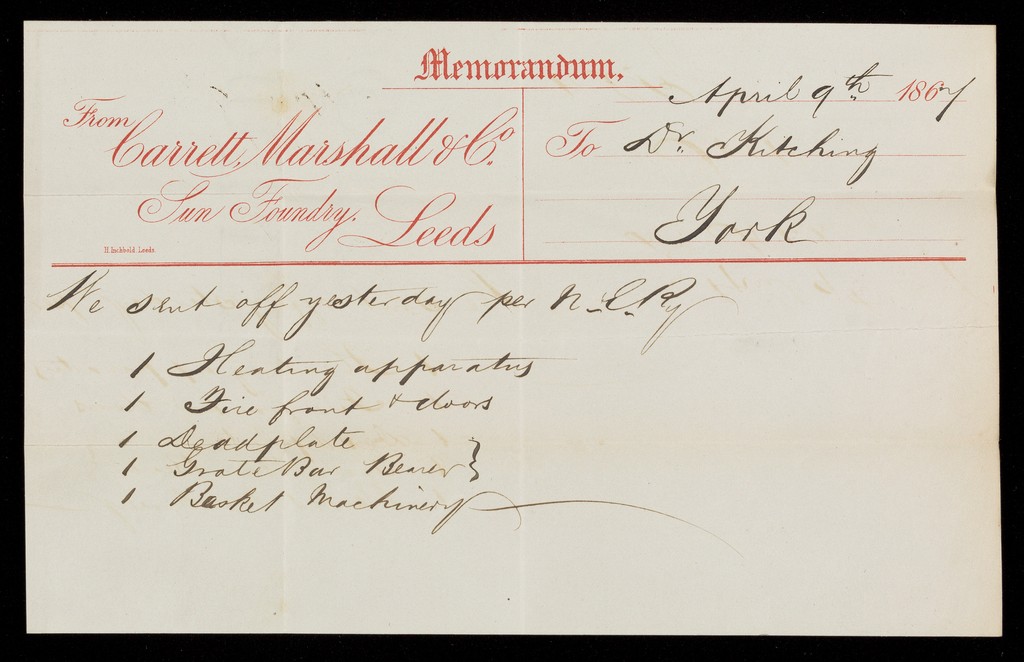 Memorandum.
April 9th 1867
From
Carrett, Marshall & Co.
Sun Foundry. Leeds
H. Inchbold. Leeds.
To Dr. Kitching
York
We sent off yesterday per N. E. Ry
1 Heating apparatus
1 Fire front & doors
1 Deadplate
1 Grate Bar Bearer }
1 Basket Machinery